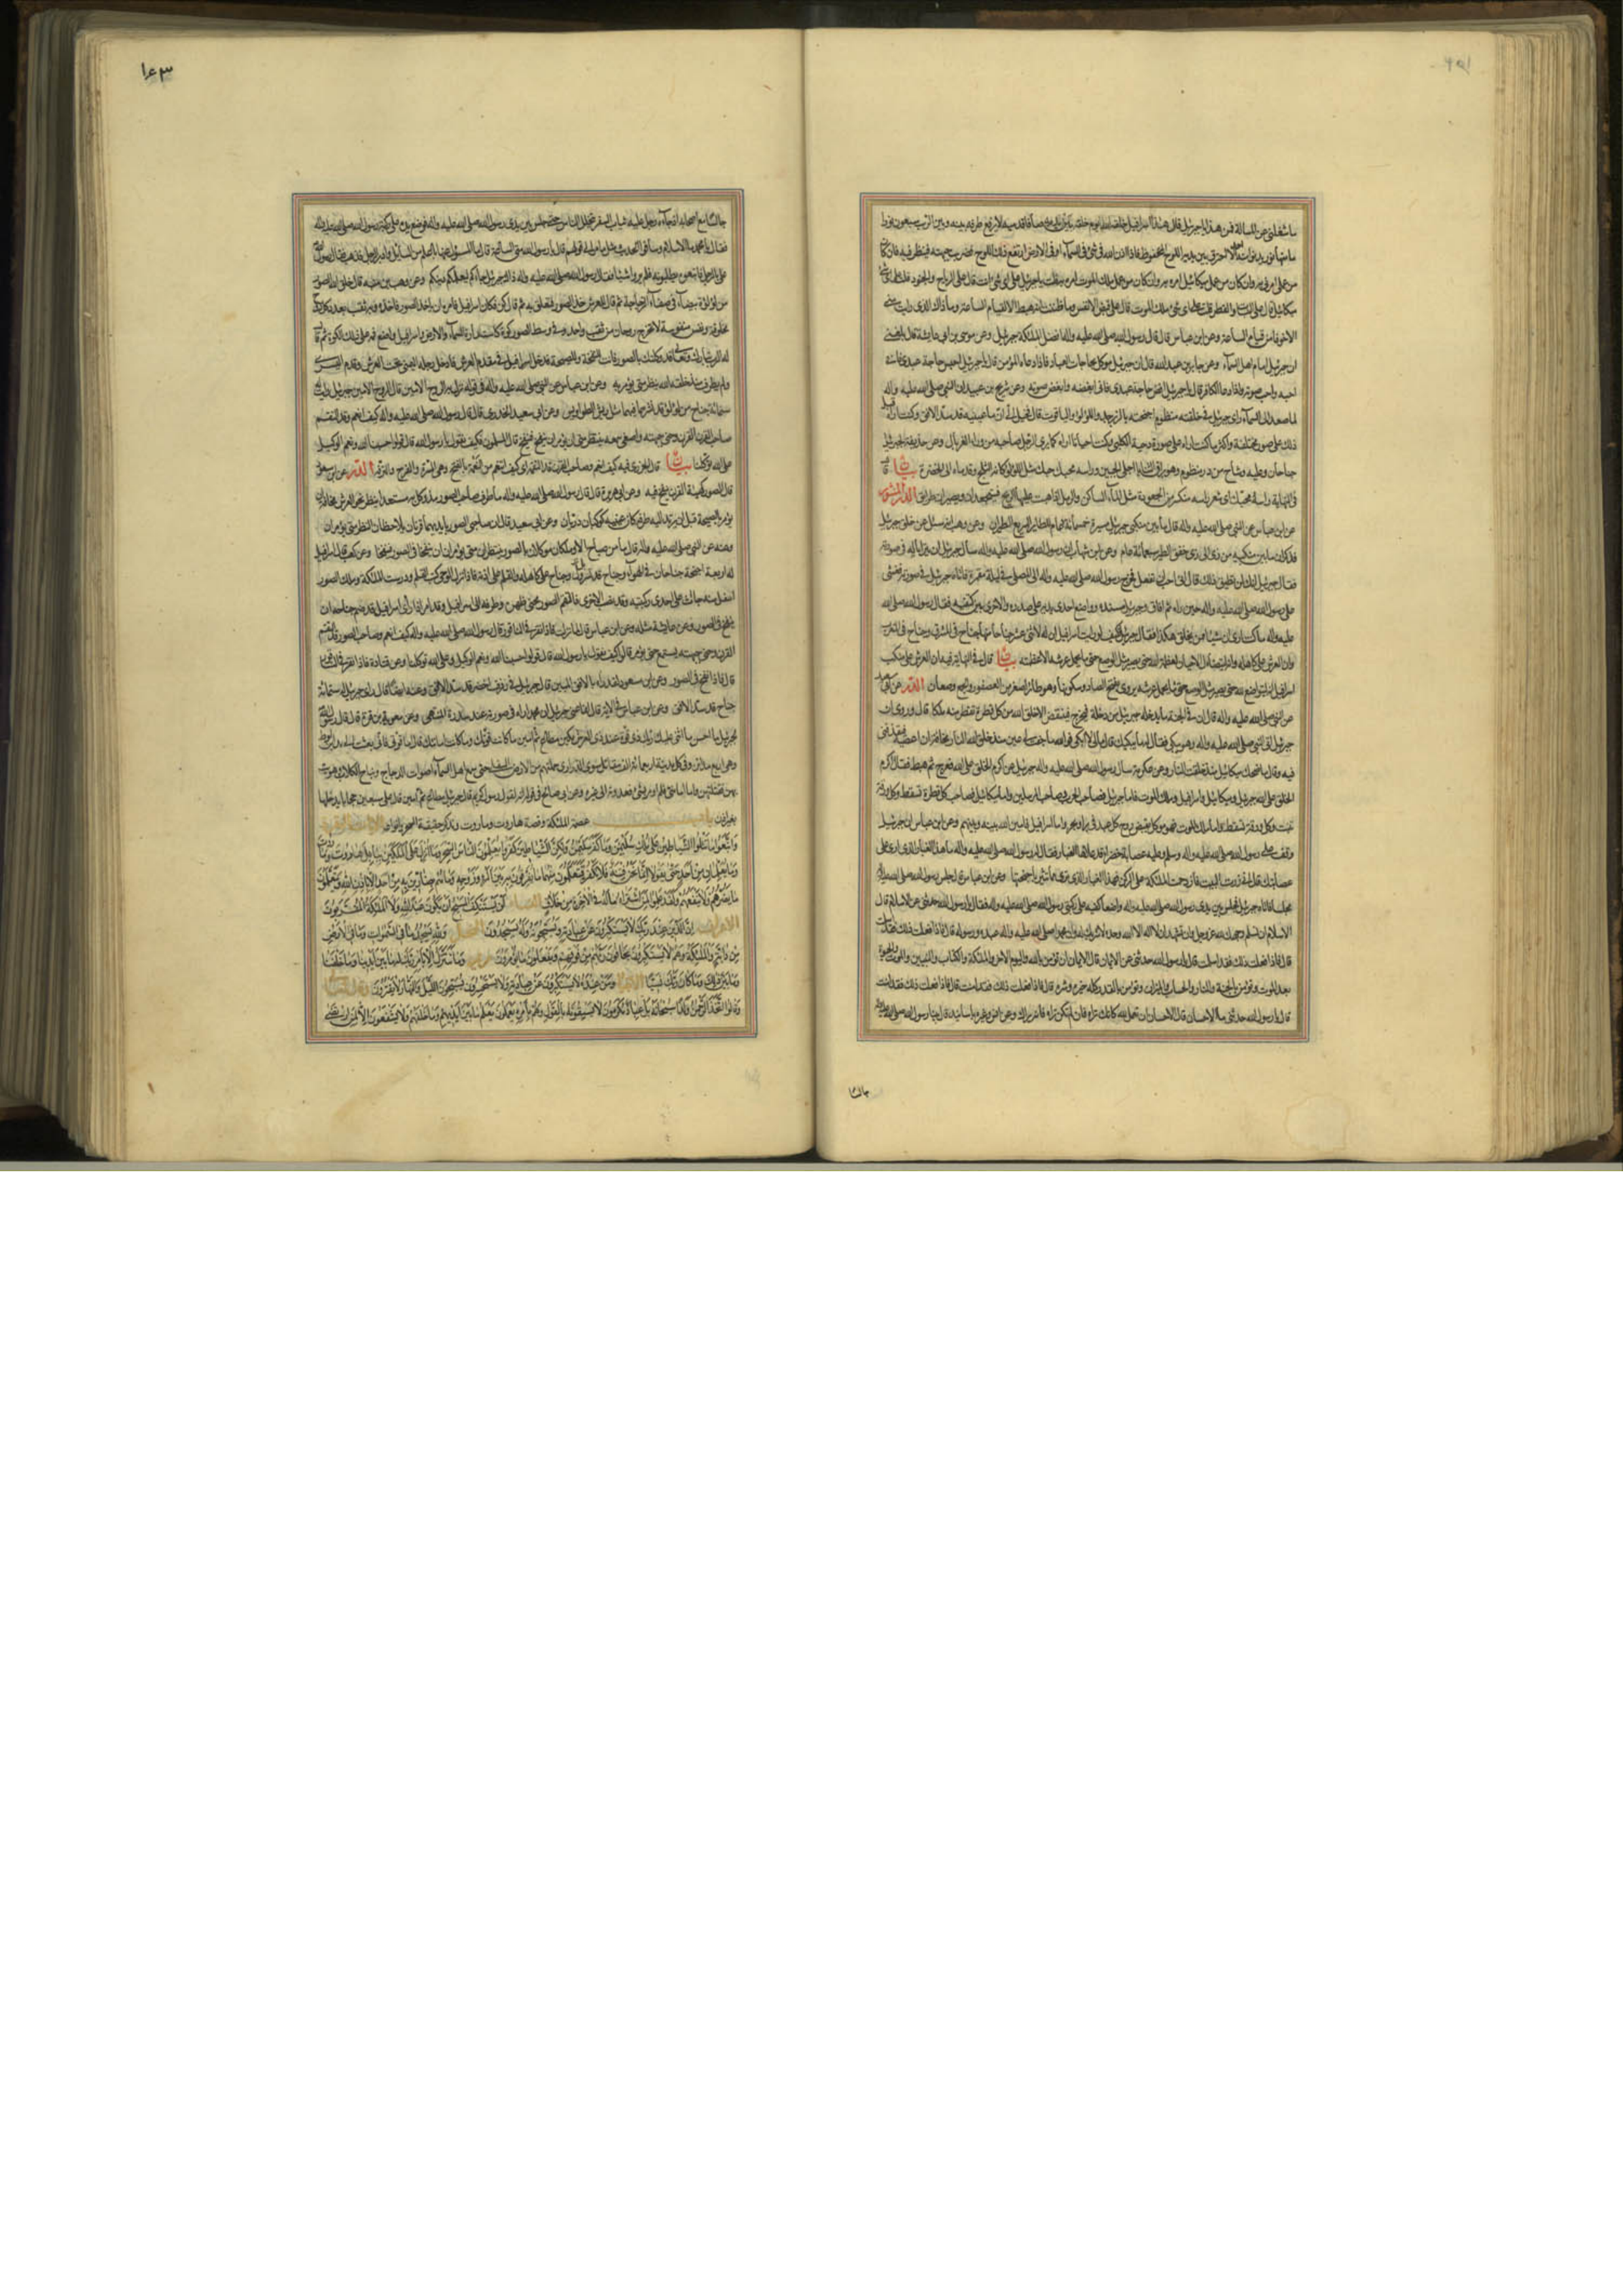 ما شغلني عن المسألة فمن هذا يا جبرئيل قال هذا إسرافيل خلقه الله يوم خلقه بين يديه صافا قدميه لا يرفع طرفه بينه وبين الرب سبعون نورا
ما منها نور يدنو منه إلا احترق بين يديه اللوح المحفوظ فإذا أذن الله في شيء في السماء أو في الأرض ارتفع ذلك اللوح فضرب جبهته فينظر فيه فإن كان
من عملي أمرني به وإن كان من عمل ميكائيل أمره به وإن كان من عمل ملك الموت أمره به قلت يا جبرئيل على أي شيء أنت قال على الرياح والجنود قلت على أي شيء
ميكائيل قال على النبات والقطر قلت على أي شيء ملك الموت قال على قبض الأنفس وما ظننت أنه هبط إلا لقيام الساعة وما ذاك الذي رأيت مني
إلا خوفا من قيام الساعة وعن ابن عباس قال قال رسول الله صلى الله عليه وآله أفضل الملائكة جبرئيل وعن موسى بن أبي عائشة قال بلغني
أن جبرئيل إمام أهل السماء وعن جابر بن عبد الله قال إن جبرئيل موكل بحاجات العباد فإذا دعاء المؤمن قال يا جبرئيل احبس حاجة عبدي فإني
أحبه وأحب صوته وإذا دعا الكافر قال يا جبرئيل اقض حاجة عبدي فإني أبغضه وأبغض صوته وعن شريح بن عبيد أن النبي صلى الله عليه وآله
لما صعد إلى السماء رأى جبرئيل في خلقته منظوم أجنحته بالزبرجد واللؤلؤ والياقوت قال فخيل إلي أن ما بين عينيه قد سد الأفق وكنت أراه قبل
ذلك على صور مختلفة وأكثر ما كنت أراه على صورة دحية الكلبي وكنت أحيانا أراه كما يرى الرجل صاحبه من وراء الغربال وعن حذيفة لجبرئيل
جناحان وعليه وشاح من در منظوم وهو براق الثنايا أجلى الجبين ورأسه محبك حبك مثل اللؤلؤ كأنه الثلج وقدماه إلى الخضرة بيان قال
في النهاية رأسه محبك أي شعر رأسه متكسر من الجعودة مثل الماء الساكن والرمل إذا هبت عليهما الريح فيتجعدان ويصيران طرائق الدر المنثور
عن ابن عباس عن النبي صلى الله عليه وآله قال ما بين منكبي جبرئيل مسيرة خمسمائة عام للطائر السريع الطيران وعن وهب أنه سئل عن خلق جبرئيل
فذكر أن ما بين منكبيه من ذي إلى ذي خفق الطير سبعمائة عام وعن ابن شهاب أن رسول الله صلى الله عليه وآله سأل جبرئيل أن يتراءى له في صورته
فقال جبرئيل إنك لن تطيق ذلك قال إني أحب أن تفعل فخرج رسول الله صلى الله عليه وآله إلى المصلى في ليلة مقمرة فأتاه جبرئيل في صورته فغشي
على رسول الله صلى الله عليه وآله حين رآه ثم أفاق وجبرئيل مسنده وواضع إحدى يديه على صدره والأخرى بين كتفيه فقال رسول الله صلى الله
عليه وآله ما كنت أرى أن شيئا من يخلق هكذا فقال جبرئيل فكيف لو رأيت إسرافيل إن له لاثني عشر جناحا منها جناح في المشرق وجناح في المغرب
وإن العرش على كاهله وإنه ليتضاءل الأحيان لعظمة الله حتى يصير مثل الوصع حتى ما يحمل عرشه إلا عظمته بيان قال في النهاية فيه إن العرش على منكب
إسرافيل وإنه ليتواضع لله حتى يصير مثل الوصع يروى بفتح الصاد وسكونها وهو طائر أصغر من العصفور والجمع وصعان الدر عن
عن النبي صلى الله عليه وآله قال إن في الجنة ما يدخله جبرئيل من دخلة فيخرج فينتفض إلا خلق الله من كل قطرة تقطر منه ملكا قال وروي أن
جبرئيل أتى النبي صلى الله عليه وآله وهو يبكي فقال له ما يبكيك قال ما لي لا أبكي فوالله ما جفت لي عين منذ خلق الله النار مخافة أن أعصيه فيقذفني
فيه وقال ما ضحك ميكائيل منذ خلقت النار وعن عكرمة سأل رسول الله صلى الله عليه وآله جبرئيل عن أكرم الخلق على الله فعرج ثم هبط فقال أكرم
الخلق على الله جبرئيل وميكائيل وإسرافيل وملك الموت فأما جبرئيل فصاحب الحرب وصاحب المرسلين وأما ميكائيل فصاحب كل قطرة تسقط وكل ورقة
تنبت وكل ورقة تسقط وأما ملك الموت فهو موكل بقبض روح كل عبد في بر أو بحر وأما إسرافيل فأمين الله بينه وبينهم وعن ابن عباس أن جبرئيل
وقف على رسول الله صلى الله عليه وآله وسلم وعليه عصابة خضراء قد علاها الغبار فقال له رسول الله صلى الله عليه وآله ما هذا الغبار الذي أرى على
عصابتك قال إني زرت البيت فازدحمت الملائكة على الركن فهذا الغبار الذي ترى مما تثير بأجنحتها وعن ابن عباس قال جلس رسول الله صلى الله عليه وآله
مجلسا فأتاه جبرئيل فجلس بين يدي رسول الله صلى الله عليه وآله واضعا كفيه على ركبتي رسول الله صلى الله عليه وآله فقال يا رسول الله حدثني عن الإسلام قال
الإسلام أن تسلم وجهك لله عز وجل وأن تشهد أن لا إله إلا الله وحده لا شريك له وأن محمدا صلى الله عليه وآله عبده ورسوله قال فإذا فعلت ذلك فقد أسلمت
قال فإذا فعلت ذلك فقد أسلمت قال يا رسول الله حدثني عن الإيمان قال الإيمان أن تؤمن بالله واليوم الآخر والملائكة والكتاب والنبيين والموت والحياة
بعد الموت وتؤمن بالجنة والنار والحساب والميزان وتؤمن بالقدر كله خيره وشره قال فإذا فعلت ذلك فقد آمنت قال فإذا فعلت ذلك فقد آمنت
قال يا رسول الله حدثني ما الإحسان قال الإحسان أن تعمل لله كأنك تراه فإن لم تكن تراه فإنه يراك وعن أنس وغيره بأسانيد قال بينا رسول الله صلى الله عليه وآله
جالسا
١٤٣
جالسا مع أصحابه إذ جاءه رجل عليه ثياب السفر يتخلل الناس حتى جلس بين يدي رسول الله صلى الله عليه وآله فوضع يده على ركبة رسول الله صلى الله عليه وآله
فقال يا محمد ما الإسلام وساق الحديث مثل ما مر إلى قوله ثم قال يا رسول الله متى الساعة قال ما المسئول عنها بأعلم من السائل وأدبر الرجل فذهب فقال رسول الله
علي بالرجل فاتبعوه يطلبونه فلم يروا شيئا فقال رسول الله صلى الله عليه وآله ذاك جبرئيل جاءكم ليعلمكم دينكم وعن وهب بن منبه قال خلق الله الصور
من لؤلؤة بيضاء في صفاء الزجاجة ثم قال للعرش خذ الصور فتعلق به ثم قال كن فكان إسرافيل فأمره أن يأخذ الصور فأخذه وبه ثقب بعدد كل روح
مخلوقة ونفس منفوسة لا تخرج روحان من ثقب واحد وفي وسط الصور كوة كاستدارة السماء والأرض وإسرافيل واضع فمه على تلك الكوة ثم قال
له الرب تبارك وتعالى قد وكلتك بالصور فأنت للنفخة والصيحة فدخل إسرافيل في مقدم العرش فأدخل رجله اليمنى تحت العرش وقدم اليسرى
ولم يطرف منذ خلقه الله ينظر متى يؤمر به وعن ابن عباس عن النبي صلى الله عليه وآله في قوله نزل به الروح الأمين قال الروح الأمين جبرئيل رأيت له
ستمائة جناح من لؤلؤ قد نشرها فيها مثل ريش الطواويس وعن أبي سعيد الخدري قال قال رسول الله صلى الله عليه وآله كيف أنعم وقد التقم
صاحب القرن القرن وحنى جبهته وأصغى سمعه ينتظر متى أن يؤمر أن ينفخ فينفخ قال المسلمون فكيف نقول يا رسول الله قال قولوا حسبنا الله ونعم الوكيل
على الله توكلنا بيان قال الجزري فيه كيف أنعم وصاحب القرن قد التقمه أي كيف أتنعم من النعمة بالفتح وهي المسرة والفرح والترفه الدر عن ابن مسعود
قال الصور كهيئة القرن ينفخ فيه وعن أبي هريرة قال قال رسول الله صلى الله عليه وآله ما طرف صاحب الصور مذ وكل به مستعدا ينظر نحو العرش مخافة أن
يؤمر بالصيحة قبل أن يرتد إليه طرفه كأن عينيه كوكبان دريان وعن أبي سعيد قال إن صاحبي الصور بأيديهما قرنان يلاحظان النظر متى يؤمران
وعنه عن النبي صلى الله عليه وآله قال ما من صباح إلا وملكان موكلان بالصور ينتظران متى يؤمران أن ينفخا في الصور فينفخا وعن كعب قال إسرافيل
له أربعة أجنحة جناحان في الهواء وجناح قد تسرول به وجناح على كاهله والقلم على أذنه فإذا نزل الوحي كتب القلم ودرست الملائكة وملك الصور
أسفل منه جاث على إحدى ركبتيه وقد نصب الأخرى فالتقم الصور محني ظهره وطرفه إلى إسرافيل وقد أمر إذا رأى إسرافيل قد ضم جناحه أن
ينفخ في الصور وعن عائشة مثله وعن ابن عباس قال لما نزلت فإذا نقر في الناقور قال رسول الله صلى الله عليه وآله كيف أنعم وصاحب الصور قد التقم
القرن وحنى جبهته يستمع متى يؤمر قالوا كيف نقول يا رسول الله قال قولوا حسبنا الله ونعم الوكيل وعلى الله توكلنا وعن قتادة فإذا نقر في الناقور
قال فإذا نفخ في الصور وعن ابن مسعود ولقد رآه بالأفق المبين قال جبرئيل في رفرف أخضر قد سد الأفق وعنه أيضا قال رأى جبرئيل له ستمائة
جناح قد سد الأفق وعن ابن عباس في الآية قال إنما عنى جبرئيل أن محمدا رآه في صورته عند سدرة المنتهى وعن معوية بن قرة قال قال رسول الله
لجبرئيل ما أحسن ما أثنى عليك ربك ذي قوة عند ذي العرش مكين مطاع ثم أمين ما كانت قوتك وما كانت أمانتك قال أما قوتي فإني بعثت إلى مدائن لوط
وهي أربع مدائن وفي كل مدينة أربعمائة ألف مقاتل سوى الذراري فحملتهم من الأرض السفلى حتى سمع أهل السماء أصوات الدجاج ونباح الكلاب ثم هويت
بهن فقتلتهن وأما أمانتي فلم أومر بشيء فعدوته إلى غيره وعن أبي صالح في قوله إنه لقول رسول كريم قال جبرئيل مطاع ثم أمين قال على سبعين حجابا يدخلها
بغير إذن باب عصمة الملائكة وقصة هاروت وماروت وذكر حقيقة السحر وأنواعه الآيات البقرة
وَاتَّبَعُوا مَا تَتْلُوا الشَّيَاطِينُ عَلَى مُلْكِ سُلَيْمَنَ وَمَا كَفَرَ سُلَيْمَنُ وَلَكِنَّ الشَّيَاطِينَ كَفَرُوا يُعَلِّمُونَ النَّاسَ السِّحْرَ وَمَا أُنْزِلَ عَلَى الْمَلَكَيْنِ بِبَابِلَ هَارُوتَ وَمَارُوتَ
وَمَا يُعَلِّمَانِ مِنْ أَحَدٍ حَتَّى يَقُولَا إِنَّمَا نَحْنُ فِتْنَةٌ فَلَا تَكْفُرْ فَيَتَعَلَّمُونَ مِنْهُمَا مَا يُفَرِّقُونَ بِهِ بَيْنَ الْمَرْءِ وَزَوْجِهِ وَمَا هُمْ بِضَارِّينَ بِهِ مِنْ أَحَدٍ إِلَّا بِإِذْنِ اللهِ وَيَتَعَلَّمُونَ
مَا يَضُرُّهُمْ وَلَا يَنْفَعُهُمْ وَلَقَدْ عَلِمُوا لَمَنِ اشْتَرَاهُ مَا لَهُ فِي الْآخِرَةِ مِنْ خَلَاقٍ النساء لَنْ يَسْتَنْكِفَ الْمَسِيحُ أَنْ يَكُونَ عَبْدًا لِلَّهِ وَلَا الْمَلَائِكَةُ الْمُقَرَّبُونَ
الأعراف إِنَّ الَّذِينَ عِنْدَ رَبِّكَ لَا يَسْتَكْبِرُونَ عَنْ عِبَادَتِهِ وَيُسَبِّحُونَهُ وَلَهُ يَسْجُدُونَ النحل وَلِلَّهِ يَسْجُدُ مَا فِي السَّمَوَاتِ وَمَا فِي الْأَرْضِ
مِنْ دَابَّةٍ وَالْمَلَائِكَةُ وَهُمْ لَا يَسْتَكْبِرُونَ يَخَافُونَ رَبَّهُمْ مِنْ فَوْقِهِمْ وَيَفْعَلُونَ مَا يُؤْمَرُونَ مريم وَمَا نَتَنَزَّلُ إِلَّا بِأَمْرِ رَبِّكَ لَهُ مَا بَيْنَ أَيْدِينَا وَمَا خَلْفَنَا
وَمَا بَيْنَ ذَلِكَ وَمَا كَانَ رَبُّكَ نَسِيًّا الأنبياء وَمَنْ عِنْدَهُ لَا يَسْتَكْبِرُونَ عَنْ عِبَادَتِهِ وَلَا يَسْتَحْسِرُونَ يُسَبِّحُونَ اللَّيْلَ وَالنَّهَارَ لَا يَفْتُرُونَ وقال تعالى
وَقَالُوا اتَّخَذَ الرَّحْمَنُ وَلَدًا سُبْحَانَهُ بَلْ عِبَادٌ مُكْرَمُونَ لَا يَسْبِقُونَهُ بِالْقَوْلِ وَهُمْ بِأَمْرِهِ يَعْمَلُونَ يَعْلَمُ مَا بَيْنَ أَيْدِيهِمْ وَمَا خَلْفَهُمْ وَلَا يَشْفَعُونَ إِلَّا لِمَنِ ارْتَضَى